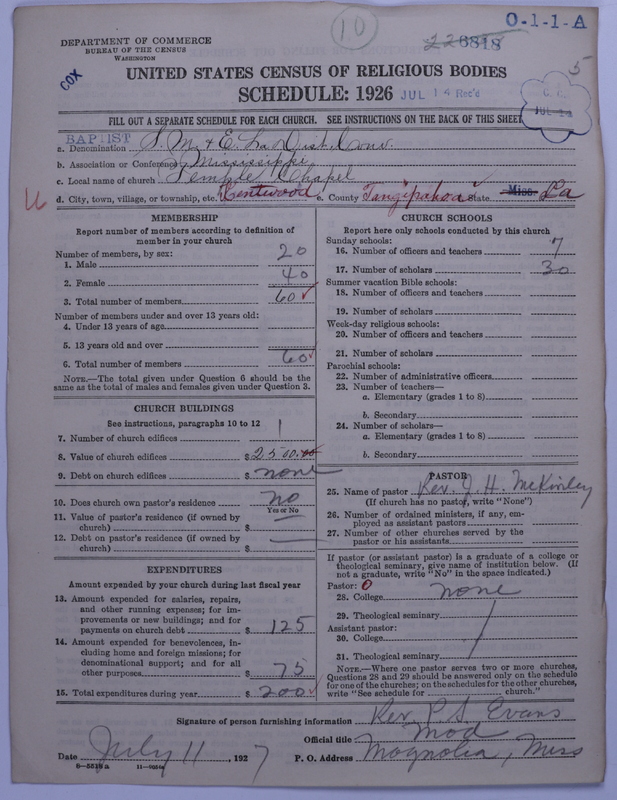 10
O-1-1-A
DEPARTMENT OF COMMERCE
BUREAU OF THE CENSUS
WASHINGTON
226818
COX
UNITED STATES CENSUS OF RELIGIOUS BODIES
SCHEDULE: 1926 JUL 14 Rec'd
5
FILL OUT A SEPARATE SCHEDULE FOR EACH CHURCH. SEE INSTRUCTIONS ON THE BACK OF THIS SHEET
BAPTIST
a. Denomination S. M. & E. La Dist. Conv.
b. Association or Conference Mississippi
c. Local name of church Temple Chapel
16
d. City, town, village, or township, etc. Kentwood e. County Tangipahoa State Miss. La
MEMBERSHIP
Report number of members according to definition of
member in your church
Number of members, by sex:
1. Male 20
2. Female 40
3. Total number of members 60 ✓
Number of members under and over 13 years old:
4. Under 13 years of age
5. 13 years old and over
6. Total number of members 60 ✓
NOTE.—The total given under Question 6 should be the
same as the total of males and females given under Question 3.
CHURCH BUILDINGS
See instructions, paragraphs 10 to 12
7. Number of church edifices 1
8. Value of church edifices $ 2500.00
9. Debt on church edifices $ none
10. Does church own pastor's residence no
Yes or No
11. Value of pastor's residence (if owned by
church) $
12. Debt on pastor's residence (if owned by
church) $
EXPENDITURES
Amount expended by your church during last fiscal year
13. Amount expended for salaries, repairs,
and other running expenses; for im-
provements or new buildings; and for
payments on church debt $ 125
14. Amount expended for benevolences, in-
cluding home and foreign missions; for
denominational support; and for all
other purposes $ 75
15. Total expenditures during year $ 200 ✓
CHURCH SCHOOLS
Report here only schools conducted by this church
Sunday schools:
16. Number of officers and teachers 7
17. Number of scholars 30
Summer vacation Bible schools:
18. Number of officers and teachers
19. Number of scholars
Week-day religious schools:
20. Number of officers and teachers
21. Number of scholars
Parochial schools:
22. Number of administrative officers
23. Number of teachers—
a. Elementary (grades 1 to 8)
b. Secondary
24. Number of scholars—
a. Elementary (grades 1 to 8)
b. Secondary
PASTOR
25. Name of pastor Rev. J. H. McKinley
(If church has no pastor, write "None")
26. Number of ordained ministers, if any, em-
ployed as assistant pastors
27. Number of other churches served by the
pastor or his assistants
If pastor (or assistant pastor) is a graduate of a college or
theological seminary, give name of institution below. (If
not a graduate, write "No" in the space indicated.)
Pastor: 0
28. College none
29. Theological seminary
Assistant pastor:
30. College
31. Theological seminary
NOTE.—Where one pastor serves two or more churches,
Questions 28 and 29 should be answered only on the schedule
for one of the churches; on the schedules for the other churches,
write "See schedule for church."
Signature of person furnishing information Rev. P. S. Evans
Official title Mod
Date July 11, 1927 P. O. Address Magnolia, Miss
8—5518a 11—9051a